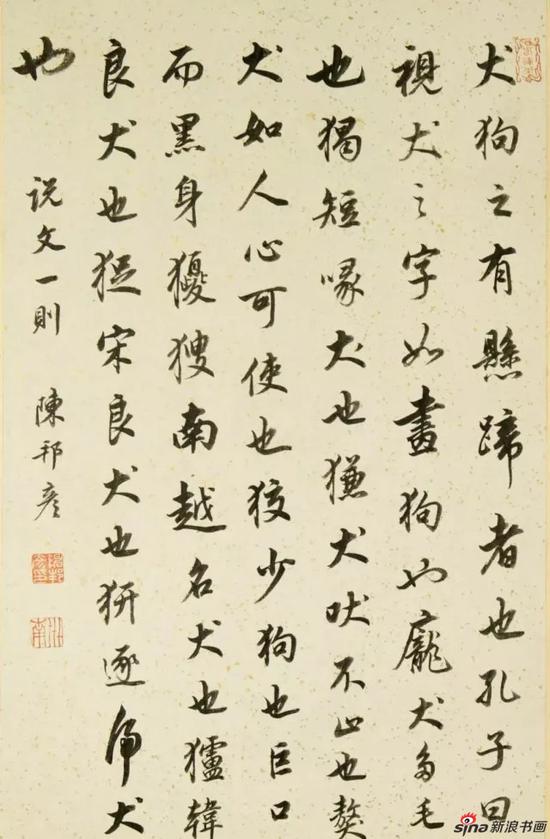 犬狗之有懸蹄者也孔子曰
視犬之字如畫狗也龐犬多毛
也猲短喙犬也獫犬吠不止也獒
犬如人心可使也狡少狗也巨口
而黑身獿獀南越名犬也獹韓
良犬也猑宋良犬也猏逐虎犬
也
说文一則 陳邦彦
sina新浪书画